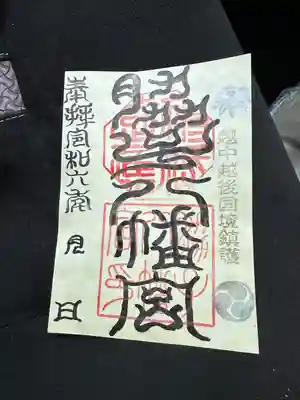 越中越後国境鎮護
脇子八幡宮
奉拝令和六年 月 日